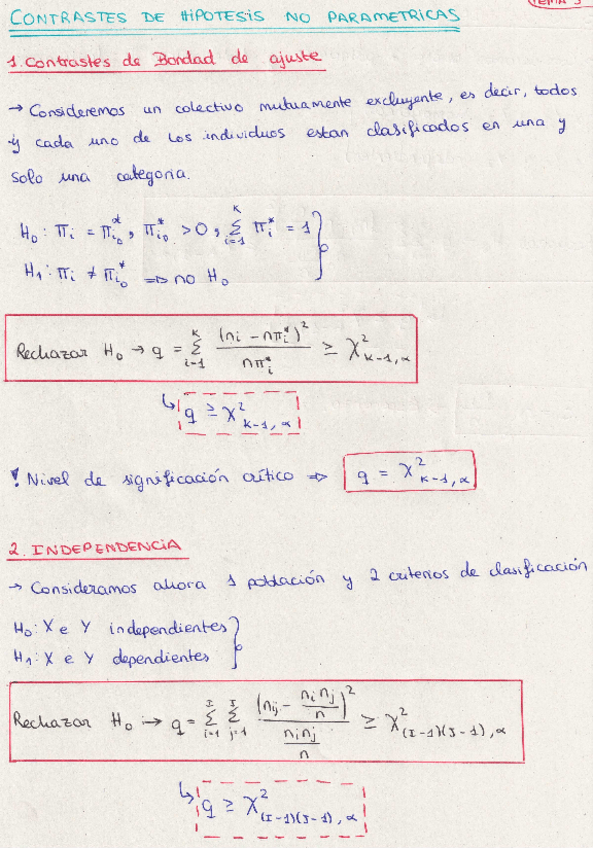 TEMA 3
CONTRASTES DE HIPOTESIS NO PARAMETRICAS
1. Contrastes de Bondad de ajuste
→ Consideremos un colectivo mutuamente excluyente, es decir, todos
y cada uno de los individuos estan clasificados en una y
solo una categoria.
H₀: πᵢ = πᵢ₀*, πᵢ₀* > 0, Σᵢ₌₁ᴷ πᵢ* = 1
H₁: πᵢ ≠ πᵢ₀* ⇒ no H₀
Rechazar H₀ → q = Σᵢ₌₁ᴷ (nᵢ - nπᵢ*)² / nπᵢ* ≥ χ²ₖ₋₁,α
↳ q ≥ χ²ₖ₋₁,α
! Nivel de significación crítico ⇒ q = χ²ₖ₋₁,α
2. INDEPENDENCIA
→ Consideramos ahora 1 población y 2 criterios de clasificación
H₀: X e Y independientes
H₁: X e Y dependientes
Rechazar H₀ → q = Σᵢ₌₁ᴵ Σⱼ₌₁ᴶ (nᵢⱼ - nᵢnⱼ/n)² / (nᵢnⱼ/n) ≥ χ²(I-1)(J-1),α
↳ q ≥ χ²(I-1)(J-1),α